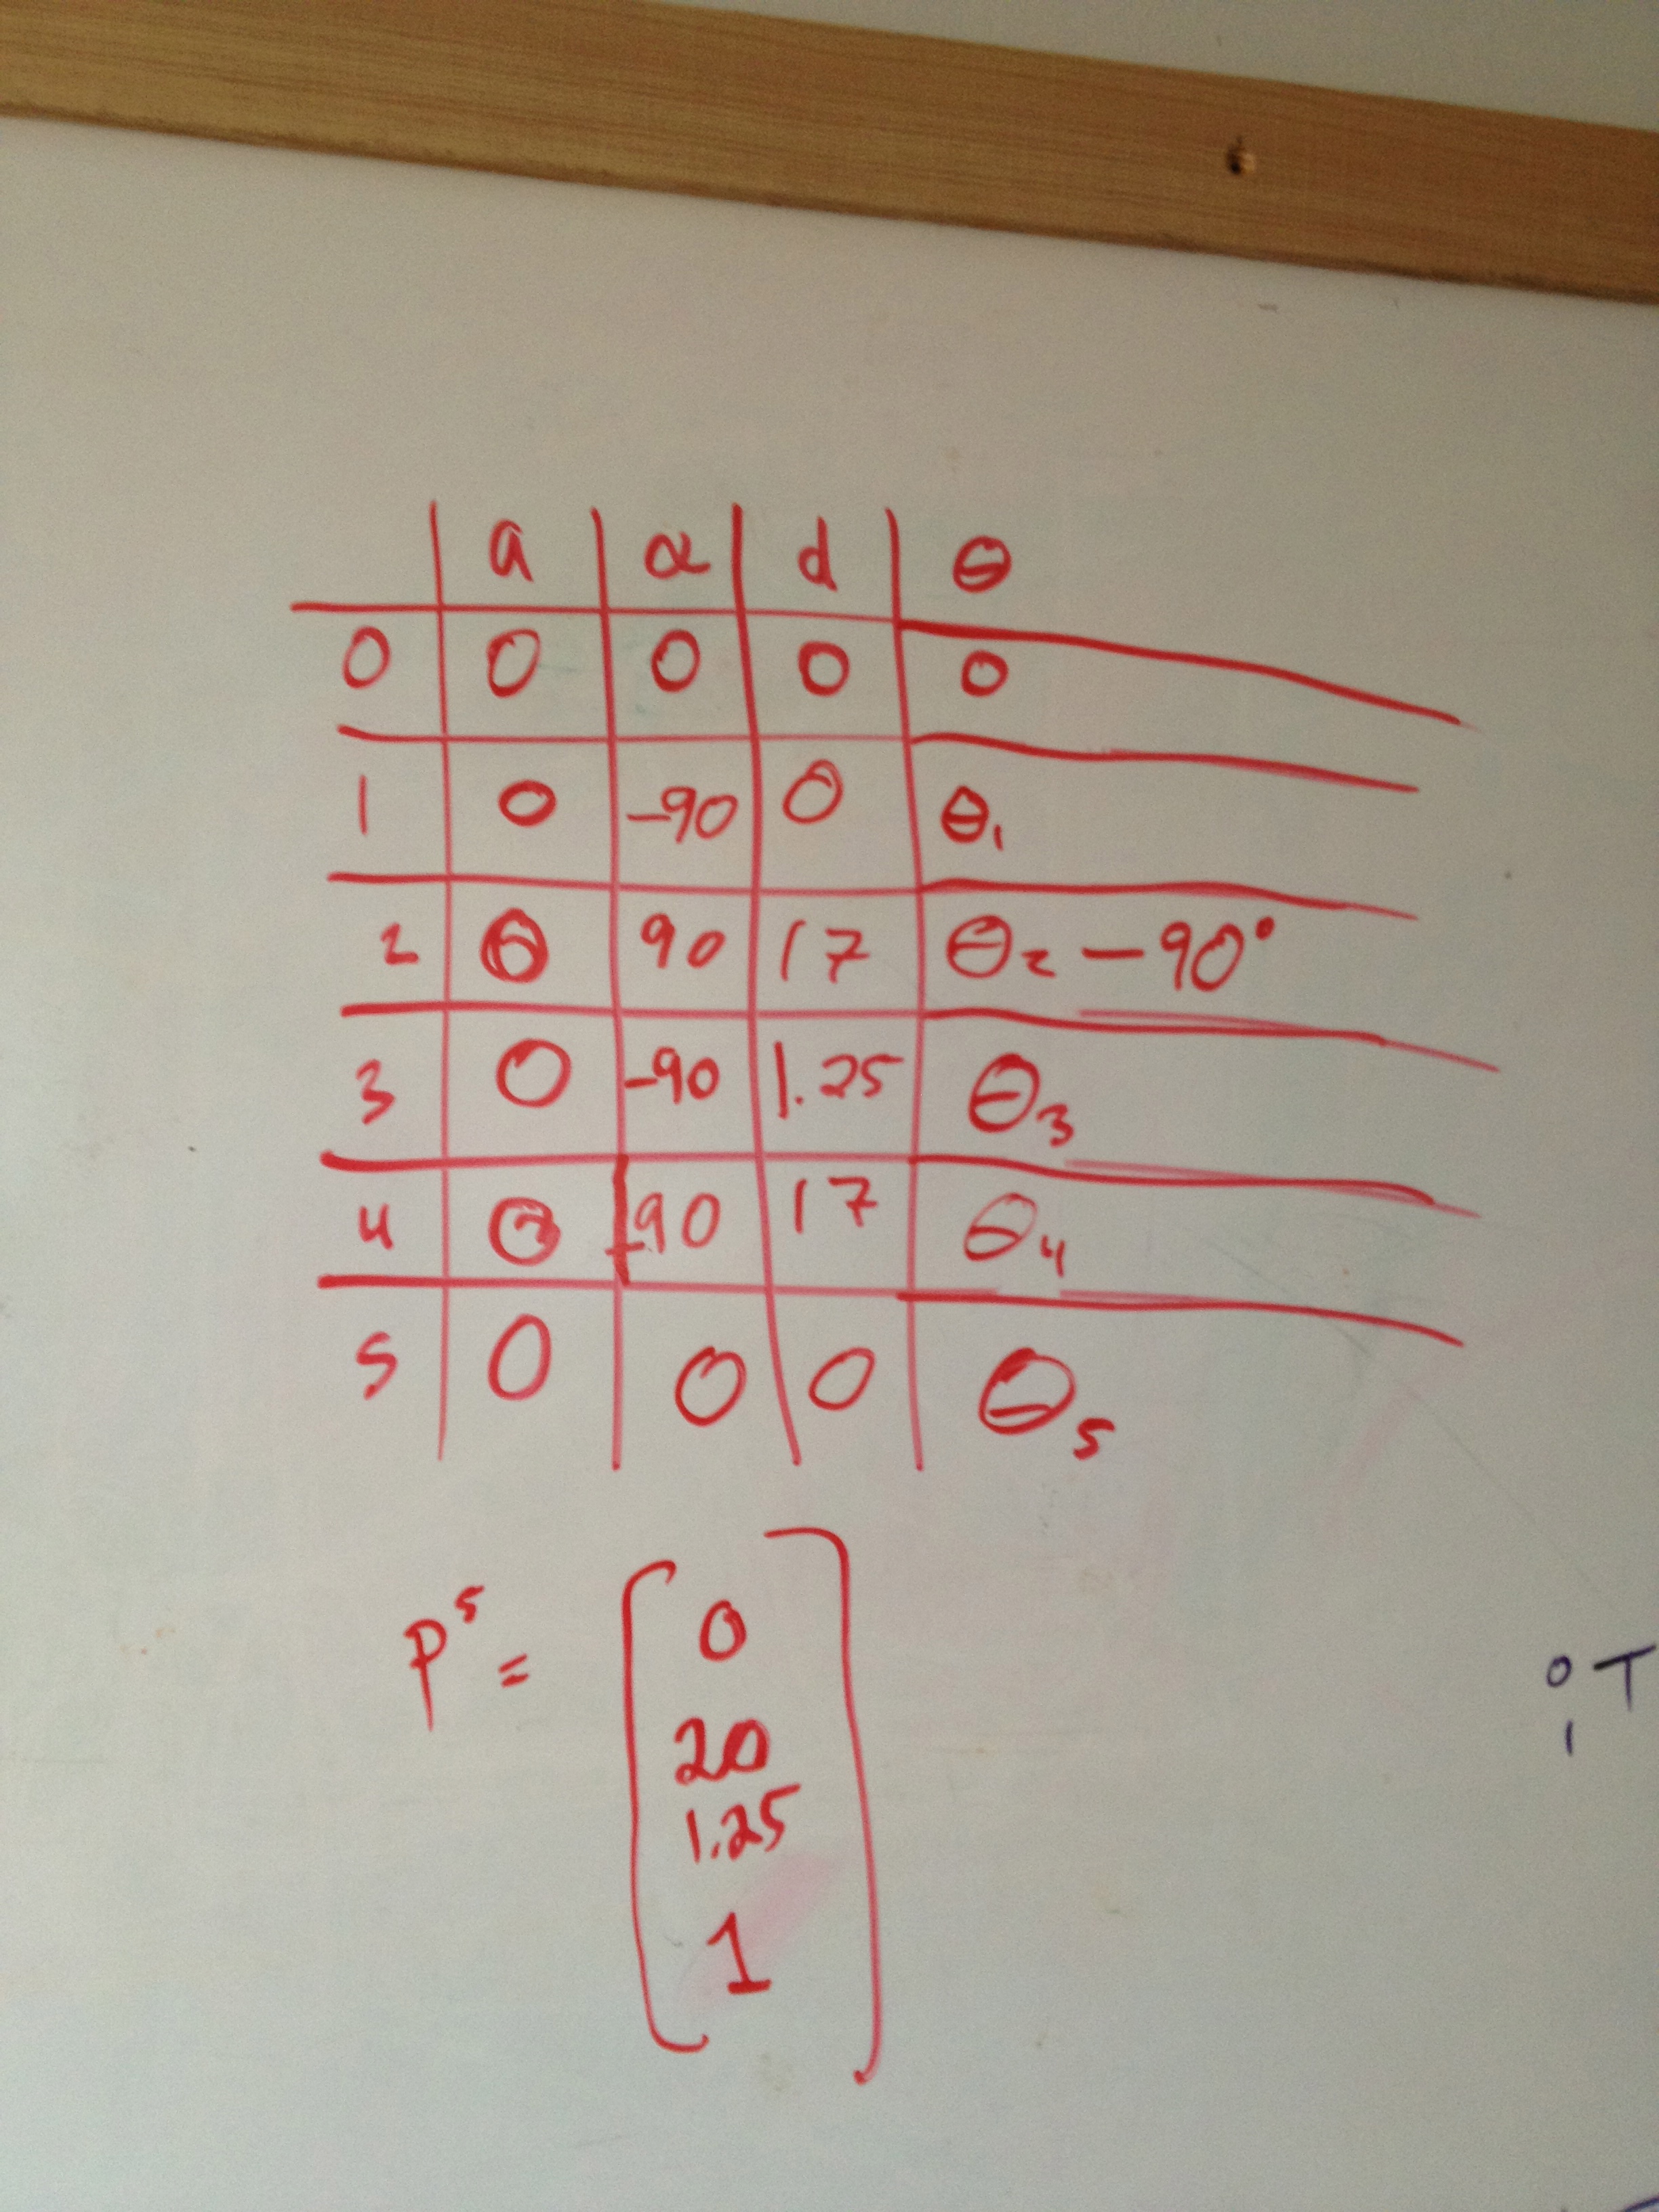 a α d θ
0 0 0 0 0
1 0 -90 0 θ₁
2 0 90 17 θ₂ -90°
3 0 -90 1.25 θ₃
4 0 -90 17 θ₄
5 0 0 0 θ₅
P⁵ =
0
20
1.25
1
⁰₁T